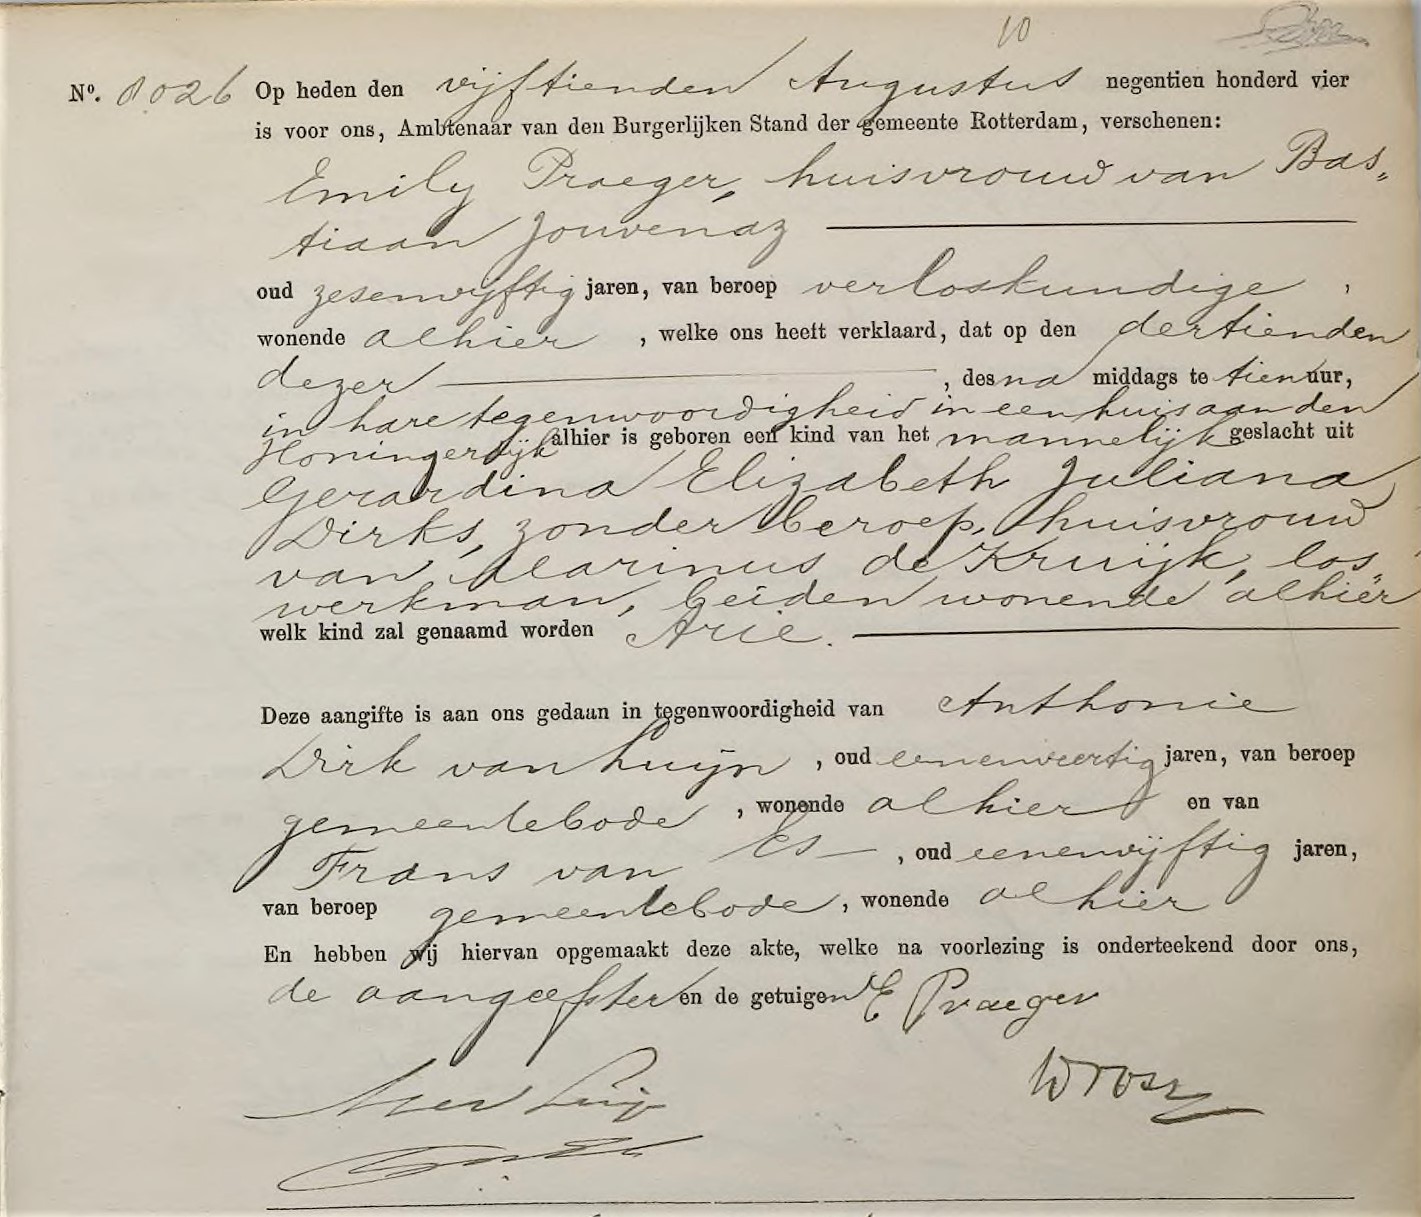 10
No. 8026 Op heden den vijftienden Augustus negentien honderd vier
is voor ons, Ambtenaar van den Burgerlijken Stand der gemeente Rotterdam, verschenen:
Emily Praeger, huisvrouw van Bas„
tiaan Jouvenaz
oud zesenvijftig jaren, van beroep verloskundige ,
wonende alhier , welke ons heeft verklaard, dat op den dertienden
dezer , des na middags te tien uur,
in hare tegenwoordigheid in een huis aan den
Honingerdijk alhier is geboren een kind van het mannelijk geslacht uit
Gerardina Elizabeth Juliana
Dirks, zonder beroep, huisvrouw
van Marinus de Kruijk, los„
werkman, beiden wonende alhier
welk kind zal genaamd worden Arie.
Deze aangifte is aan ons gedaan in tegenwoordigheid van Anthonie
Dirk van Luijn , oud eenenveertig jaren, van beroep
gemeentebode , wonende alhier en van
Frans van Es , oud eenenvijftig jaren,
van beroep gemeentebode , wonende alhier
En hebben wij hiervan opgemaakt deze akte, welke na voorlezing is onderteekend door ons,
de aangeefster en de getuigen E Praeger